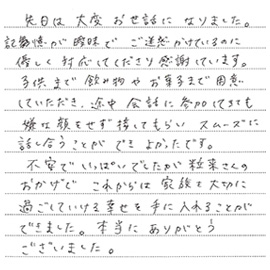 先日は大変お世話になりました。
記憶が曖昧でご迷惑かけているのに
優しく対応してくださり感謝しています。
子供まで飲み物やお菓子まで用意
していただき、途中会話に参加してきても
嫌な顔をせず接してもらいスムーズに
話し合うことができよかったです。
不安でいっぱいでしたが さんの
おかげでこれからは家族を大切に
過ごしていける幸せを手に入れることが
できました。本当にありがとう
ございました。